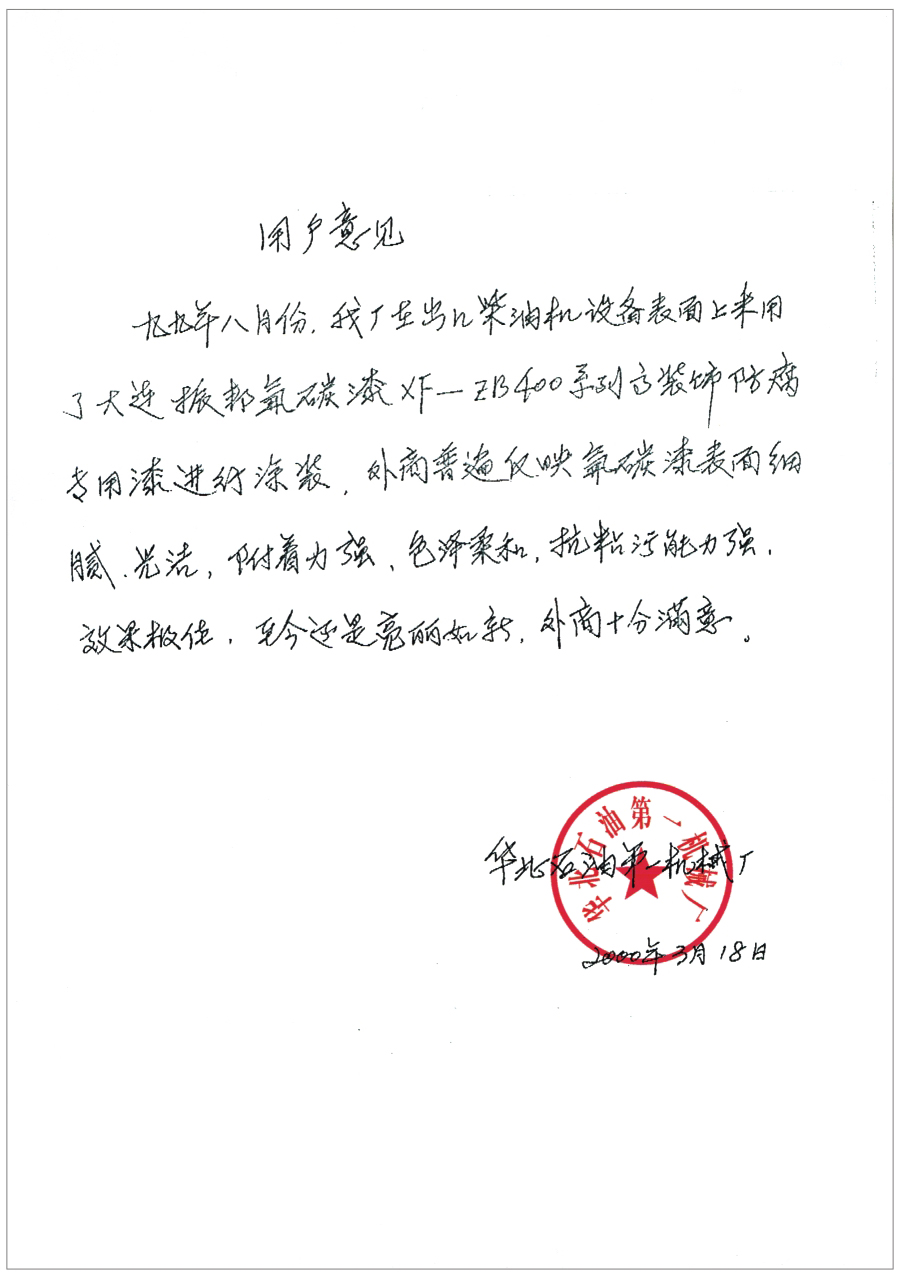 用户意见
九九年八月份，我厂在出口柴油机设备表面上采用
了大连振邦氟碳漆XF—ZB400系列高装饰防腐
专用漆进行涂装，外商普遍反映氟碳漆表面细
腻、光洁，附着力强、色泽柔和，抗粘污能力强，
效果极佳，至今还是亮丽如新，外商十分满意。
华北石油第一机械厂
华北石油第一机械厂
2000年3月18日